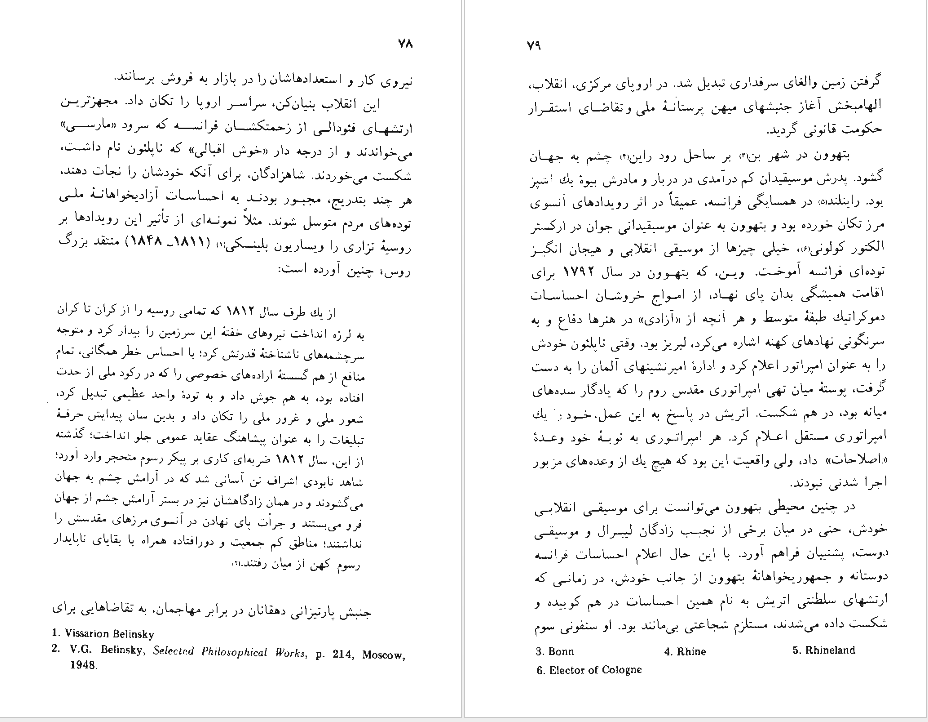 ۷۸
نیروی کار و استعدادهاشان را در بازار به فروش برسانند.
این انقلاب بنیان‌کن، سراسر اروپا را تکان داد. مجهزترین
ارتشهای فئودالی از زحمتکشان فرانسه که سرود «مارسی»
می‌خواندند و از درجه دار «خوش اقبالی» که ناپلئون نام داشت،
شکست می‌خوردند. شاهزادگان، برای آنکه خودشان را نجات دهند،
هر چند بتدریج، مجبور بودند به احساسات آزادیخواهانهٔ ملی
توده‌های مردم متوسل شوند. مثلاً نمونه‌ای از تأثیر این رویدادها بر
روسیهٔ تزاری را ویساریون بلینسکی(۱) (۱۸۱۱ـ ۱۸۴۸) منتقد بزرگ
روس، چنین آورده است:
از یك طرف سال ۱۸۱۲ که تمامی روسیه را از کران تا کران
به لرزه انداخت نیروهای خفتهٔ این سرزمین را بیدار کرد و متوجه
سرچشمه‌های ناشناختهٔ قدرتش کرد؛ با احساس خطر همگانی، تمام
منافع از هم گسستهٔ اراده‌های خصوصی را که در رکود ملی از حدت
افتاده بود، به هم جوش داد و به تودهٔ واحد عظیمی تبدیل کرد،
شعور ملی و غرور ملی را تکان داد و بدین سان پیدایش حرفهٔ
تبلیغات را به عنوان پیشاهنگ عقاید عمومی جلو انداخت؛ گذشته
از این، سال ۱۸۱۲ ضربه‌ای کاری بر پیکر رسوم متحجر وارد آورد؛
شاهد نابودی اشراف تن آسانی شد که در آرامش چشم به جهان
می‌گشودند و در همان زادگاهشان نیز در بستر آرامش چشم از جهان
فرو می‌بستند و جرأت پای نهادن در آنسوی مرزهای مقدسش را
نداشتند؛ مناطق کم جمعیت و دورافتاده همراه با بقایای ناپایدار
رسوم کهن از میان رفتند.(۲)
جنبش پارتیزانی دهقانان در برابر مهاجمان، به تقاضاهایی برای
1. Vissarion Belinsky
2. V.G. Belinsky, Selected Philosophical Works, p. 214, Moscow,
1948.
۷۹
گرفتن زمین والغای سرفداری تبدیل شد. در اروپای مرکزی، انقلاب،
الهامبخش آغاز جنبشهای میهن پرستانهٔ ملی وتقاضای استقرار
حکومت قانونی گردید.
بتهوون در شهر بن(۳) بر ساحل رود راین(۴) چشم به جهان
گشود. پدرش موسیقیدان کم درآمدی در دربار و مادرش بیوهٔ یك آشپز
بود. راینلند(۵) در همسایگی فرانسه، عمیقاً در اثر رویدادهای آنسوی
مرز تکان خورده بود و بتهوون به عنوان موسیقیدانی جوان در ارکستر
الکتور کولونی(۶)، خیلی چیزها از موسیقی انقلابی و هیجان انگیز
توده‌ای فرانسه آموخت. وین، که بتهوون در سال ۱۷۹۲ برای
اقامت همیشگی بدان پای نهاد، از امواج خروشان احساسات
دموکراتیك طبقهٔ متوسط و هر آنچه از «آزادی» در هنرها دفاع و به
سرنگونی نهادهای کهنه اشاره می‌کرد، لبریز بود. وقتی ناپلئون خودش
را به عنوان امپراتور اعلام کرد و ادارهٔ امیرنشینهای آلمان را به دست
گرفت، پوستهٔ میان تهی امپراتوری مقدس روم را که یادگار سده‌های
میانه بود، در هم شکست. اتریش در پاسخ به این عمل، خود را یك
امپراتوری مستقل اعلام کرد. هر امپراتوری به نوبهٔ خود وعدهٔ
«اصلاحات» داد، ولی واقعیت این بود که هیچ یك از وعده‌های مزبور
اجرا شدنی نبودند.
در چنین محیطی بتهوون می‌توانست برای موسیقی انقلابی
خودش، حتی در میان برخی از نجیب زادگان لیبرال و موسیقی
دوست، پشتیبان فراهم آورد. با این حال اعلام احساسات فرانسه
دوستانه و جمهوریخواهانهٔ بتهوون از جانب خودش، در زمانی که
ارتشهای سلطنتی اتریش به نام همین احساسات در هم کوبیده و
شکست داده می‌شدند، مستلزم شجاعتی بی‌مانند بود. او سنفونی سوم
3. Bonn 4. Rhine 5. Rhineland
6. Elector of Cologne